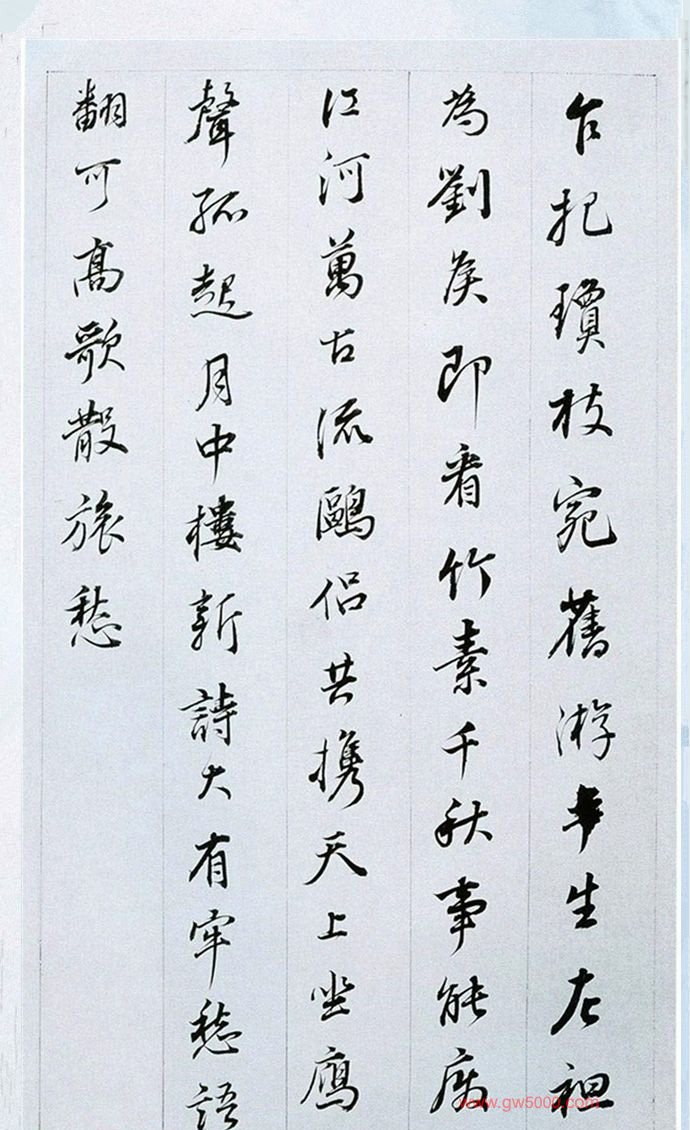 乍把瓊枝宛舊游半生左袒
為劉矦即看竹素千秋事能廢
江河萬古流鷗侶共携天上坐鴈
聲孤起月中樓新詩大有牢愁語
翻可高歌散旅愁
www.gw5000.com